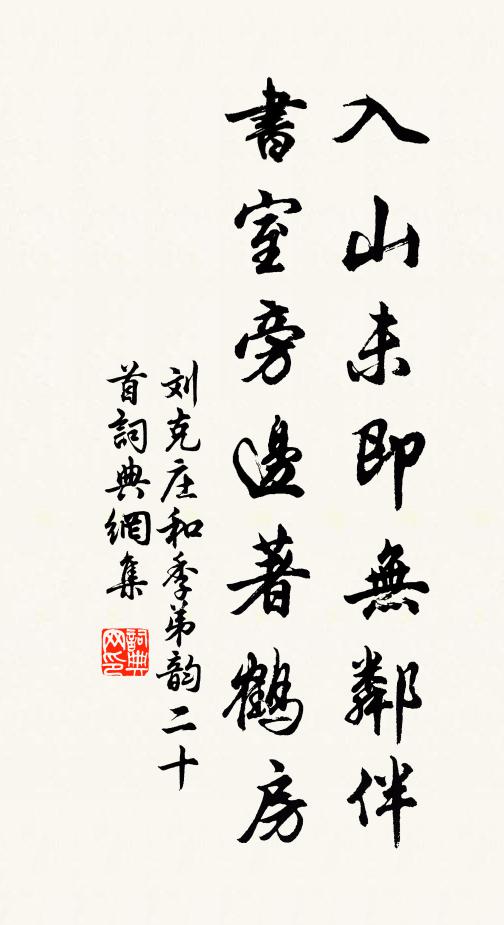 入山未即無鄰伴
書室旁邊著鶴房
刘克庄和季弟韵二十
首詞典網集
詞典网印